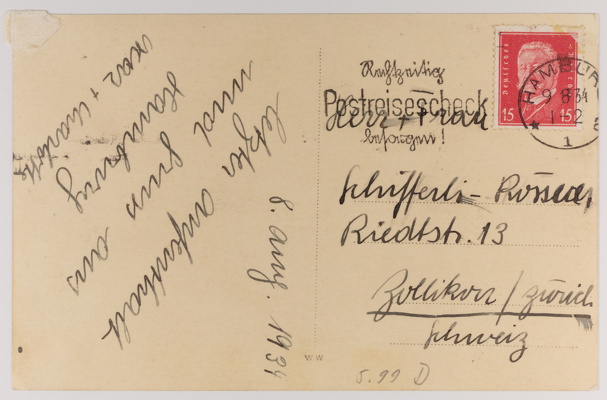 8. Aug. 1934
letzter Aufenthalt
und Gruss aus
Hamburg
+ Charlotte
Rechtzeitig
Postreisescheck
besorgen!
HAMBURG
9 8 34
1
Deutsches
15 15
Herr + Frau
Schifferli-
Riedtstr. 13
Zollikon / Zürich
Schweiz
WW
5.99 D